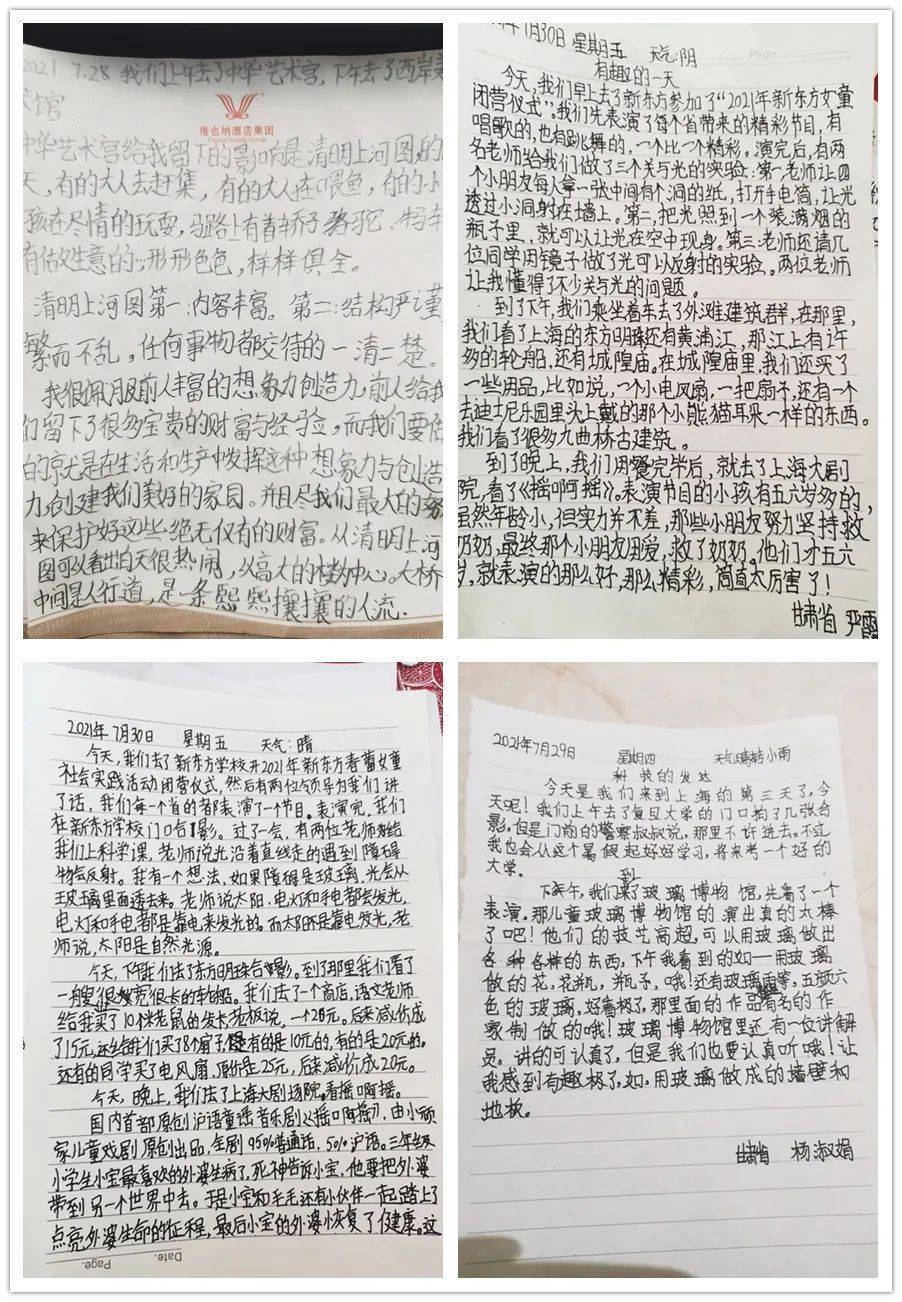 2021 7.28 我们上午去了中华艺术宫,下午去了西岸美
术馆
维也纳酒店集团
中华艺术宫给我留下的影响是清明上河图,的
天,有的大人去赶集,有的大人在喂鱼,有的小
孩在尽情的玩耍,马路上有着轿子 骆驼、牛马车
有做生意的...形形色色,样样俱全。
清明上河图第一:内容丰富。第二:结构严谨
繁而不乱,任何事物都交待的一清二楚。
我很佩服前人丰富的想象力创造力,前人给我
们留下了很多宝贵的财富与经验,而我们要做
的就是在生活和生产中发挥这种想象力与创造
力,创建我们美好的家园。并且尽我们最大的努
来保护好这些绝无仅有的财富。从清明上河
图可以看出白天很热闹,以高大的楼为中心。大桥
中间是人行道,是一条熙熙攘攘的人流.
1年7月30日 星期五 天气:阴
Page
有趣的一天
今天,我们早上去了新东方参加了“2021年新东方女童
闭营仪式”。我们先表演了每个省带来的精彩节目,有
唱歌的,也有跳舞的,一个比一个精彩,演完后,有两
名老师给我们做了三个关与光的实验:第一,老师让四
个小朋友每人拿一张中间有个洞的纸,打开手电筒,让光
透过小洞射在墙上。第二,把光照到一个装满烟的
瓶子里,就可以让光在空中现身。第三,老师还请几
位同学用镜子做了光可以反射的实验。两位老师
让我懂得了不少关与光的问题。
到了下午,我们乘坐着车去了外滩建筑群,在那里,
我们看了上海的东方明珠还有黄浦江,那江上有许
多的轮船,还有城隍庙。在城隍庙里,我们还买了
一些用品,比如说,一个小电风扇,一把扇子,还有一个
去迪士尼乐园里头上戴的那个小熊猫耳朵一样的东西。
我们看了很多九曲桥古建筑。
到了晚上,我们用餐完毕后,就去了上海大剧
院,看了《摇啊摇》。表演节目的小孩有五六岁多的,
虽然年龄小,但实力并不差,那些小朋友努力坚持救
奶奶,最终那个小朋友用爱,救了奶奶。他们才五六
岁,就表演的那么好,那么精彩,简直太厉害了!
甘肃省 严霞
2021年7月30日 星期五 天气:晴
今天,我们去了新东方学校开2021年新东方春蕾女童
社会实践活动闭营仪式,然后有两位领导为我们讲
了话,我们每一个省的都表演了一个节目。表演完,我们
在新东方学校门口合影。过了一会,有两位老师给
我们上科学课,老师说光沿着直线走的遇到障碍
物会反射。我有一个想法,如果障碍是玻璃,光会从
玻璃里面透过去来。老师说太阳、电灯和手电都会发光,
电灯和手电都是靠电来发光的。而太阳不是靠电发光,老
师说,太阳是自然光源。
今天,下午我们去了东方明珠合影。到了那里我们看了
一艘很宽很长的轮船。我们去了一个商店,语文老师
给我买了10个米老鼠的发卡,老板说,一个20元。后来减价成
了15元,还给我们买了8个扇子,有的是10元的,有的是20元的。
还有的同学买了电风扇,原价是25元,后来减价成20元。
今天,晚上,我们去了上海大剧场院,看摇啊摇。
国内首部原创沪语童谣音乐剧《摇啊摇》,由小顽
家儿童戏剧原创出品,全剧95%普通话,5%沪语。三年级
小学生小宝最喜欢的外婆生病了,死神告诉小宝,他要把外婆
带到另一个世界中去。于是小宝和毛毛还有小伙伴一起踏上了
点亮外婆生命的征程,最后小宝的外婆恢复了健康。这
Page. Date.
2021年7月29日 星期四 天气:晴转小雨
科技的发达
今天是我们来到上海的第三天了,今
天呢!我们上午去了复旦大学的门口拍了几张合
影,但是门前的警察叔叔说,那里不许进去。不过
我也会从这个暑假起好好学习,将来考一个好的
大学。
下午,我们来到了玻璃博物馆,先看了一个
表演。那儿童玻璃博物馆的演出真的太棒
了吧!他们的技艺高超,可以用玻璃做出
各种各样的东西,下午我看到的如——用玻璃
做的花,花瓶,瓶子,哦!还有玻璃面等,五颜六
色的玻璃,好看极了,那里面的作品有名的作
家制做的哦!玻璃博物馆里还有一位讲解
员。讲的可认真了,但是我们也要认真听哦!让
我感到有趣极了,如,用玻璃做成的墙壁和
地板。
甘肃省 杨淑娟